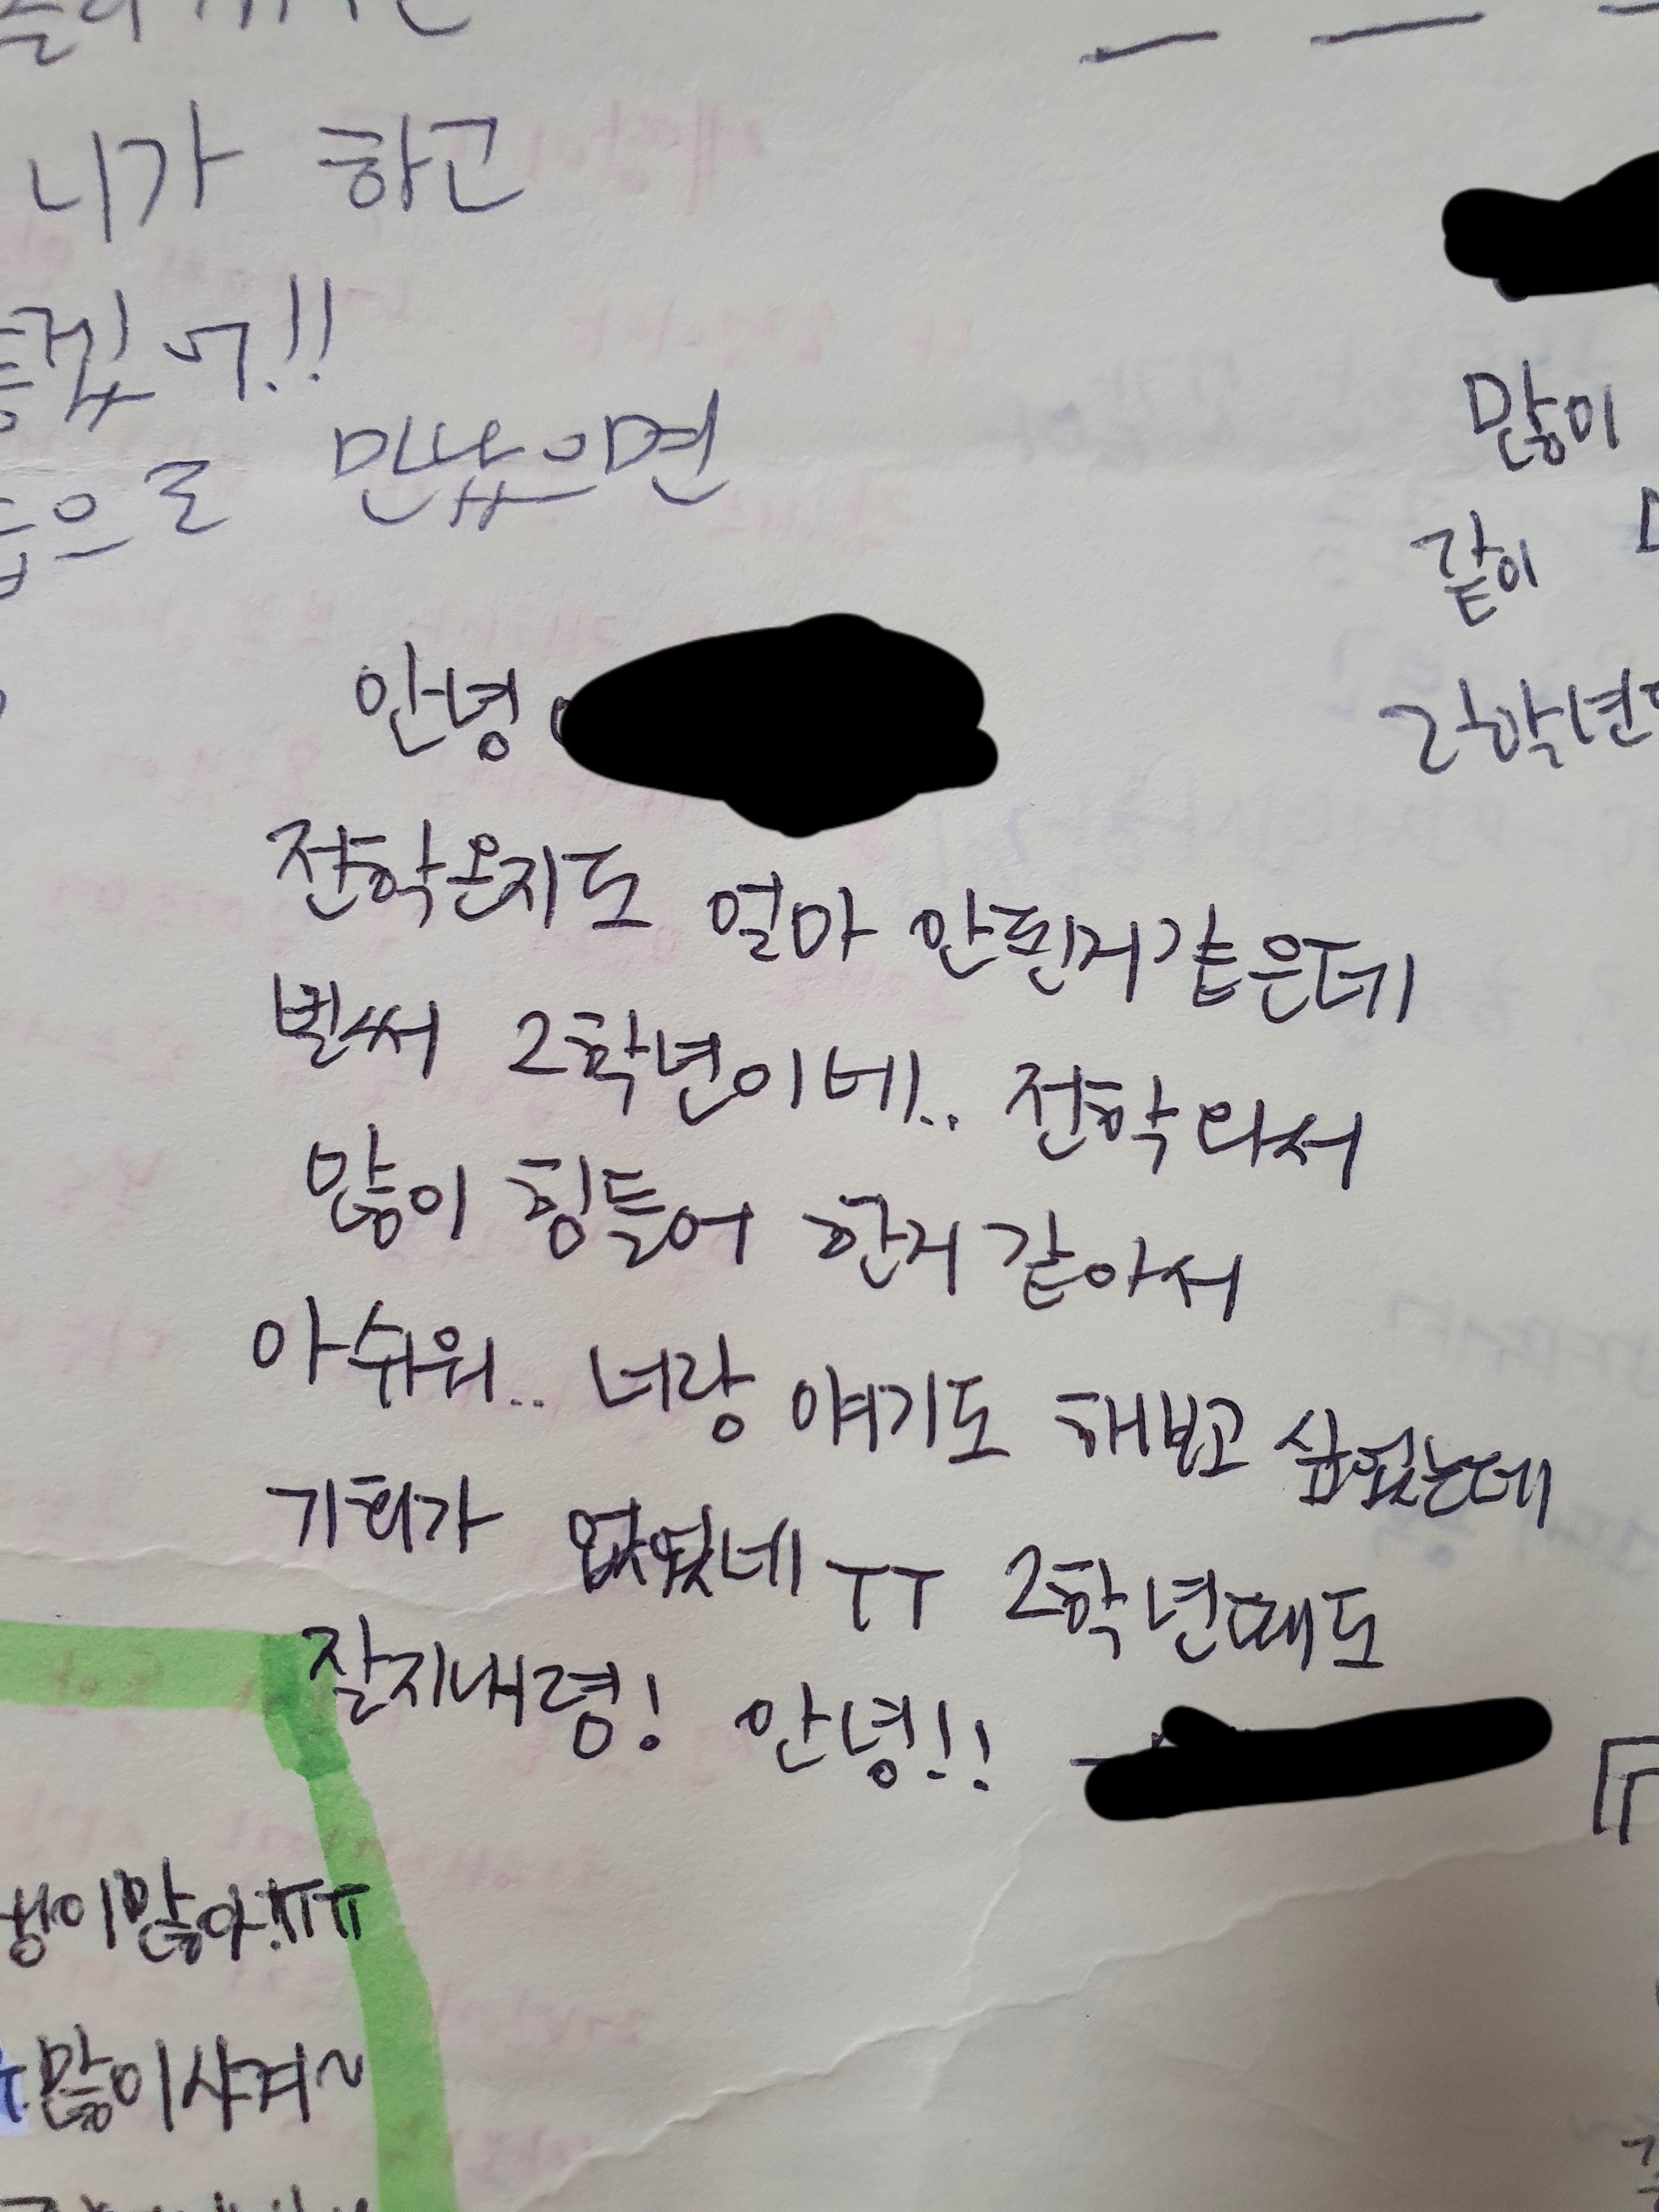 니가 하고
만났으면
많이
같이
2학년
안녕
전학온지도 얼마 안된거같은데
벌써 2학년이네.. 전학와서
많이 힘들어 한거 같아서
아쉬워.. 너랑 얘기도 해보고 싶었는데
기회가 없었네 ㅜㅜ 2학년때도
잘지내렴! 안녕!!
많아!ㅠㅠ
많이사겨~